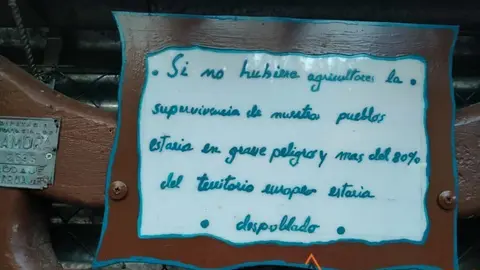 Si no hubiera agricultores la
supervivencia de nuestros pueblos
estaria en grave peligro y mas del 80%
del territorio europeo estaria
despoblado